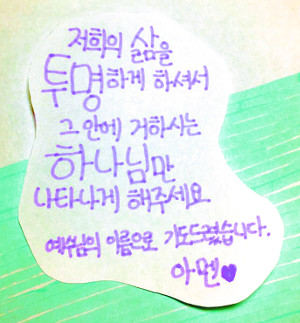 저희의 삶을
투명하게 하셔서
그 안에 거하시는
하나님만
나타나게 해주세요
예수님의 이름으로 기도드렸습니다.
아멘♥